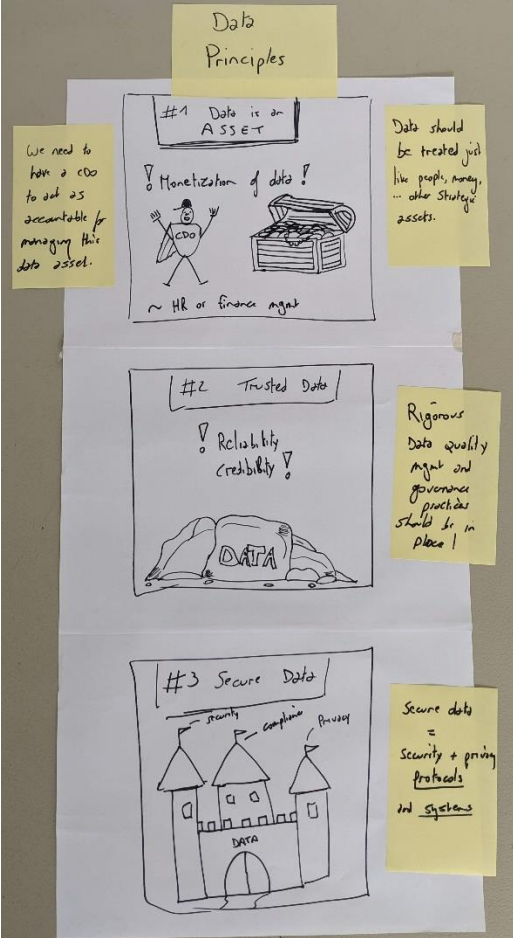 Data
Principles
#1 Data is an
ASSET
We need to
have a CDO
to act as
accountable for
managing this
data asset.
! Monetization of data !
CDO
~ HR or finance mgmt
Data should
be treated just
like people, money,
... other strategic
assets.
#2 Trusted Data
! Reliability
Credibility !
DATA
Rigorous
Data quality
mgmt and
governance
practices
should be in
place !
#3 Secure Data
security
compliance
Privacy
DATA
Secure data
=
Security + privacy
Protocols
and systems